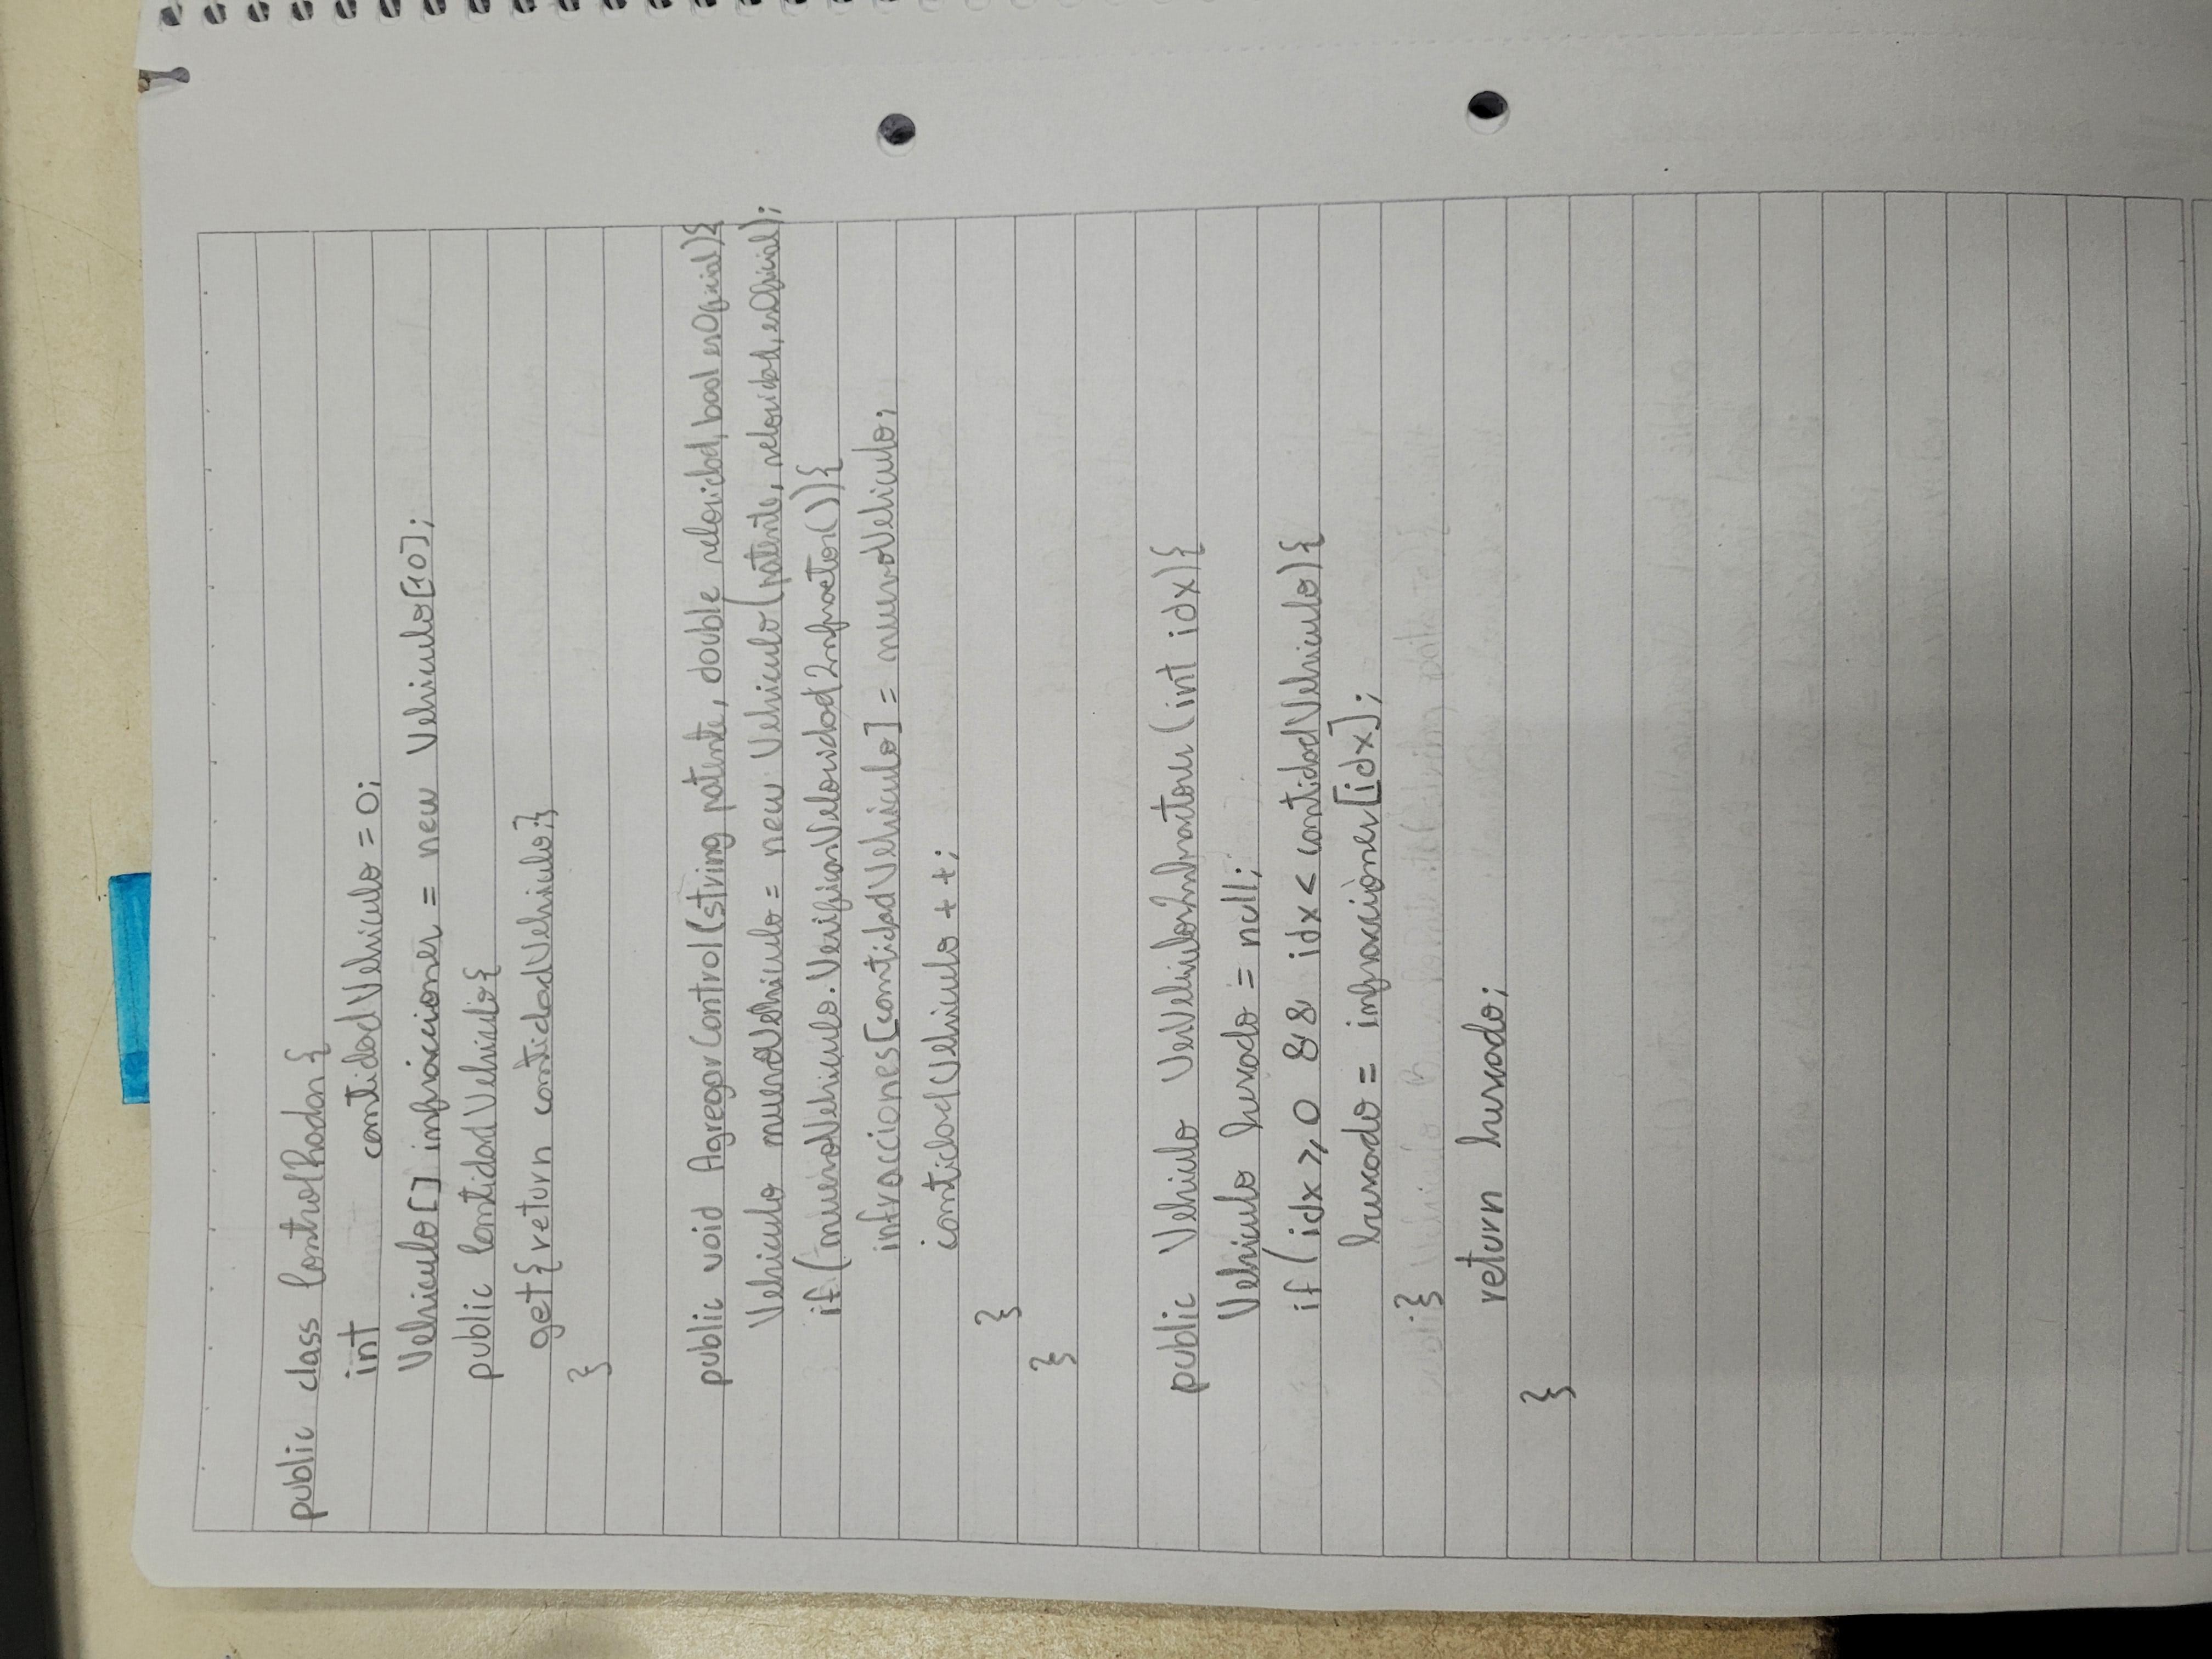 public class ControlRadar{
int cantidadVehiculo = 0;
Vehiculo[] infracciones = new Vehiculo[10];
public CantidadVehiculo{
get{return cantidadVehiculo;}
}
public void AgregarControl(string patente, double velocidad, bool esOficial){
Vehiculo nuevoVehiculo = new Vehiculo(patente, velocidad, esOficial);
if(nuevoVehiculo.VerificarVelocidadInfractor()){
infracciones[cantidadVehiculo] = nuevoVehiculo;
cantidadVehiculo ++;
}
}
public Vehiculo VerVehiculosInfractores(int idx){
Vehiculo buscado = null;
if(idx ≥ 0 && idx < cantidadVehiculo){
buscado = infracciones[idx];
}
return buscado;
}